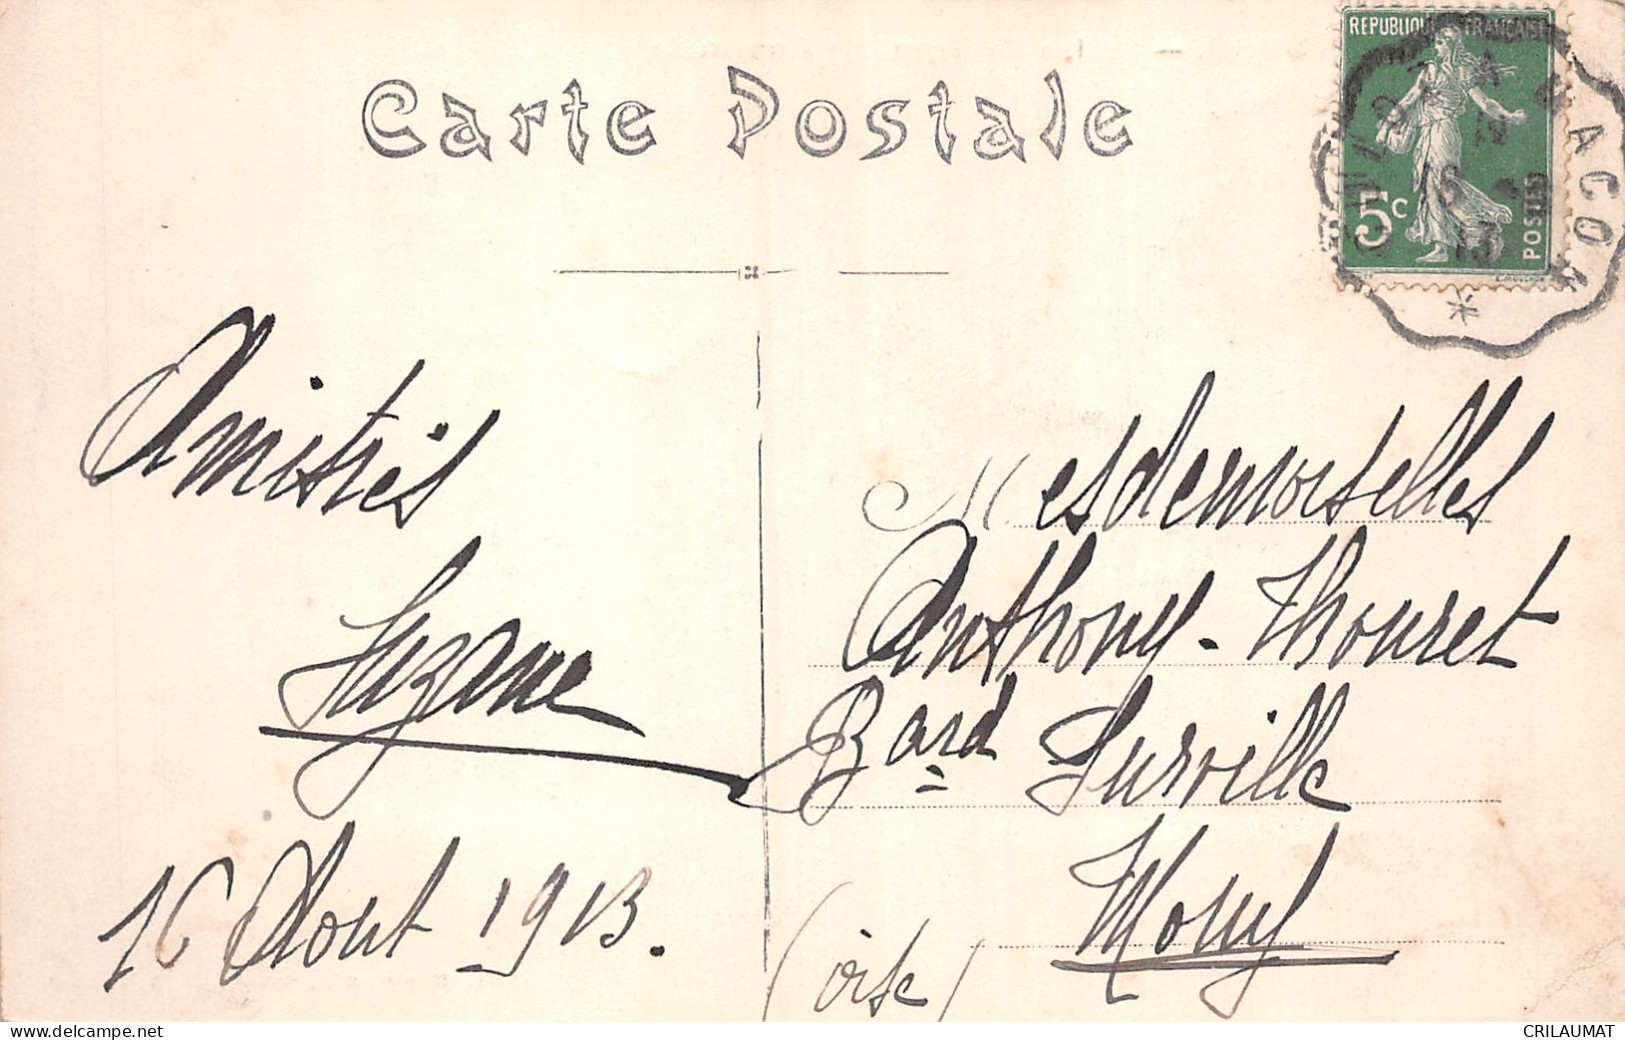 Carte Postale
REPUBLIQUE FRANÇAISE
5c
POSTES
16
13
Amitiés
Suzanne
16 Aout 1913.
Mesdemoiselles
Anthony-Thouret
Bard Surville
Mouy
(oise)
www.delcampe.net
CRILAUMAT